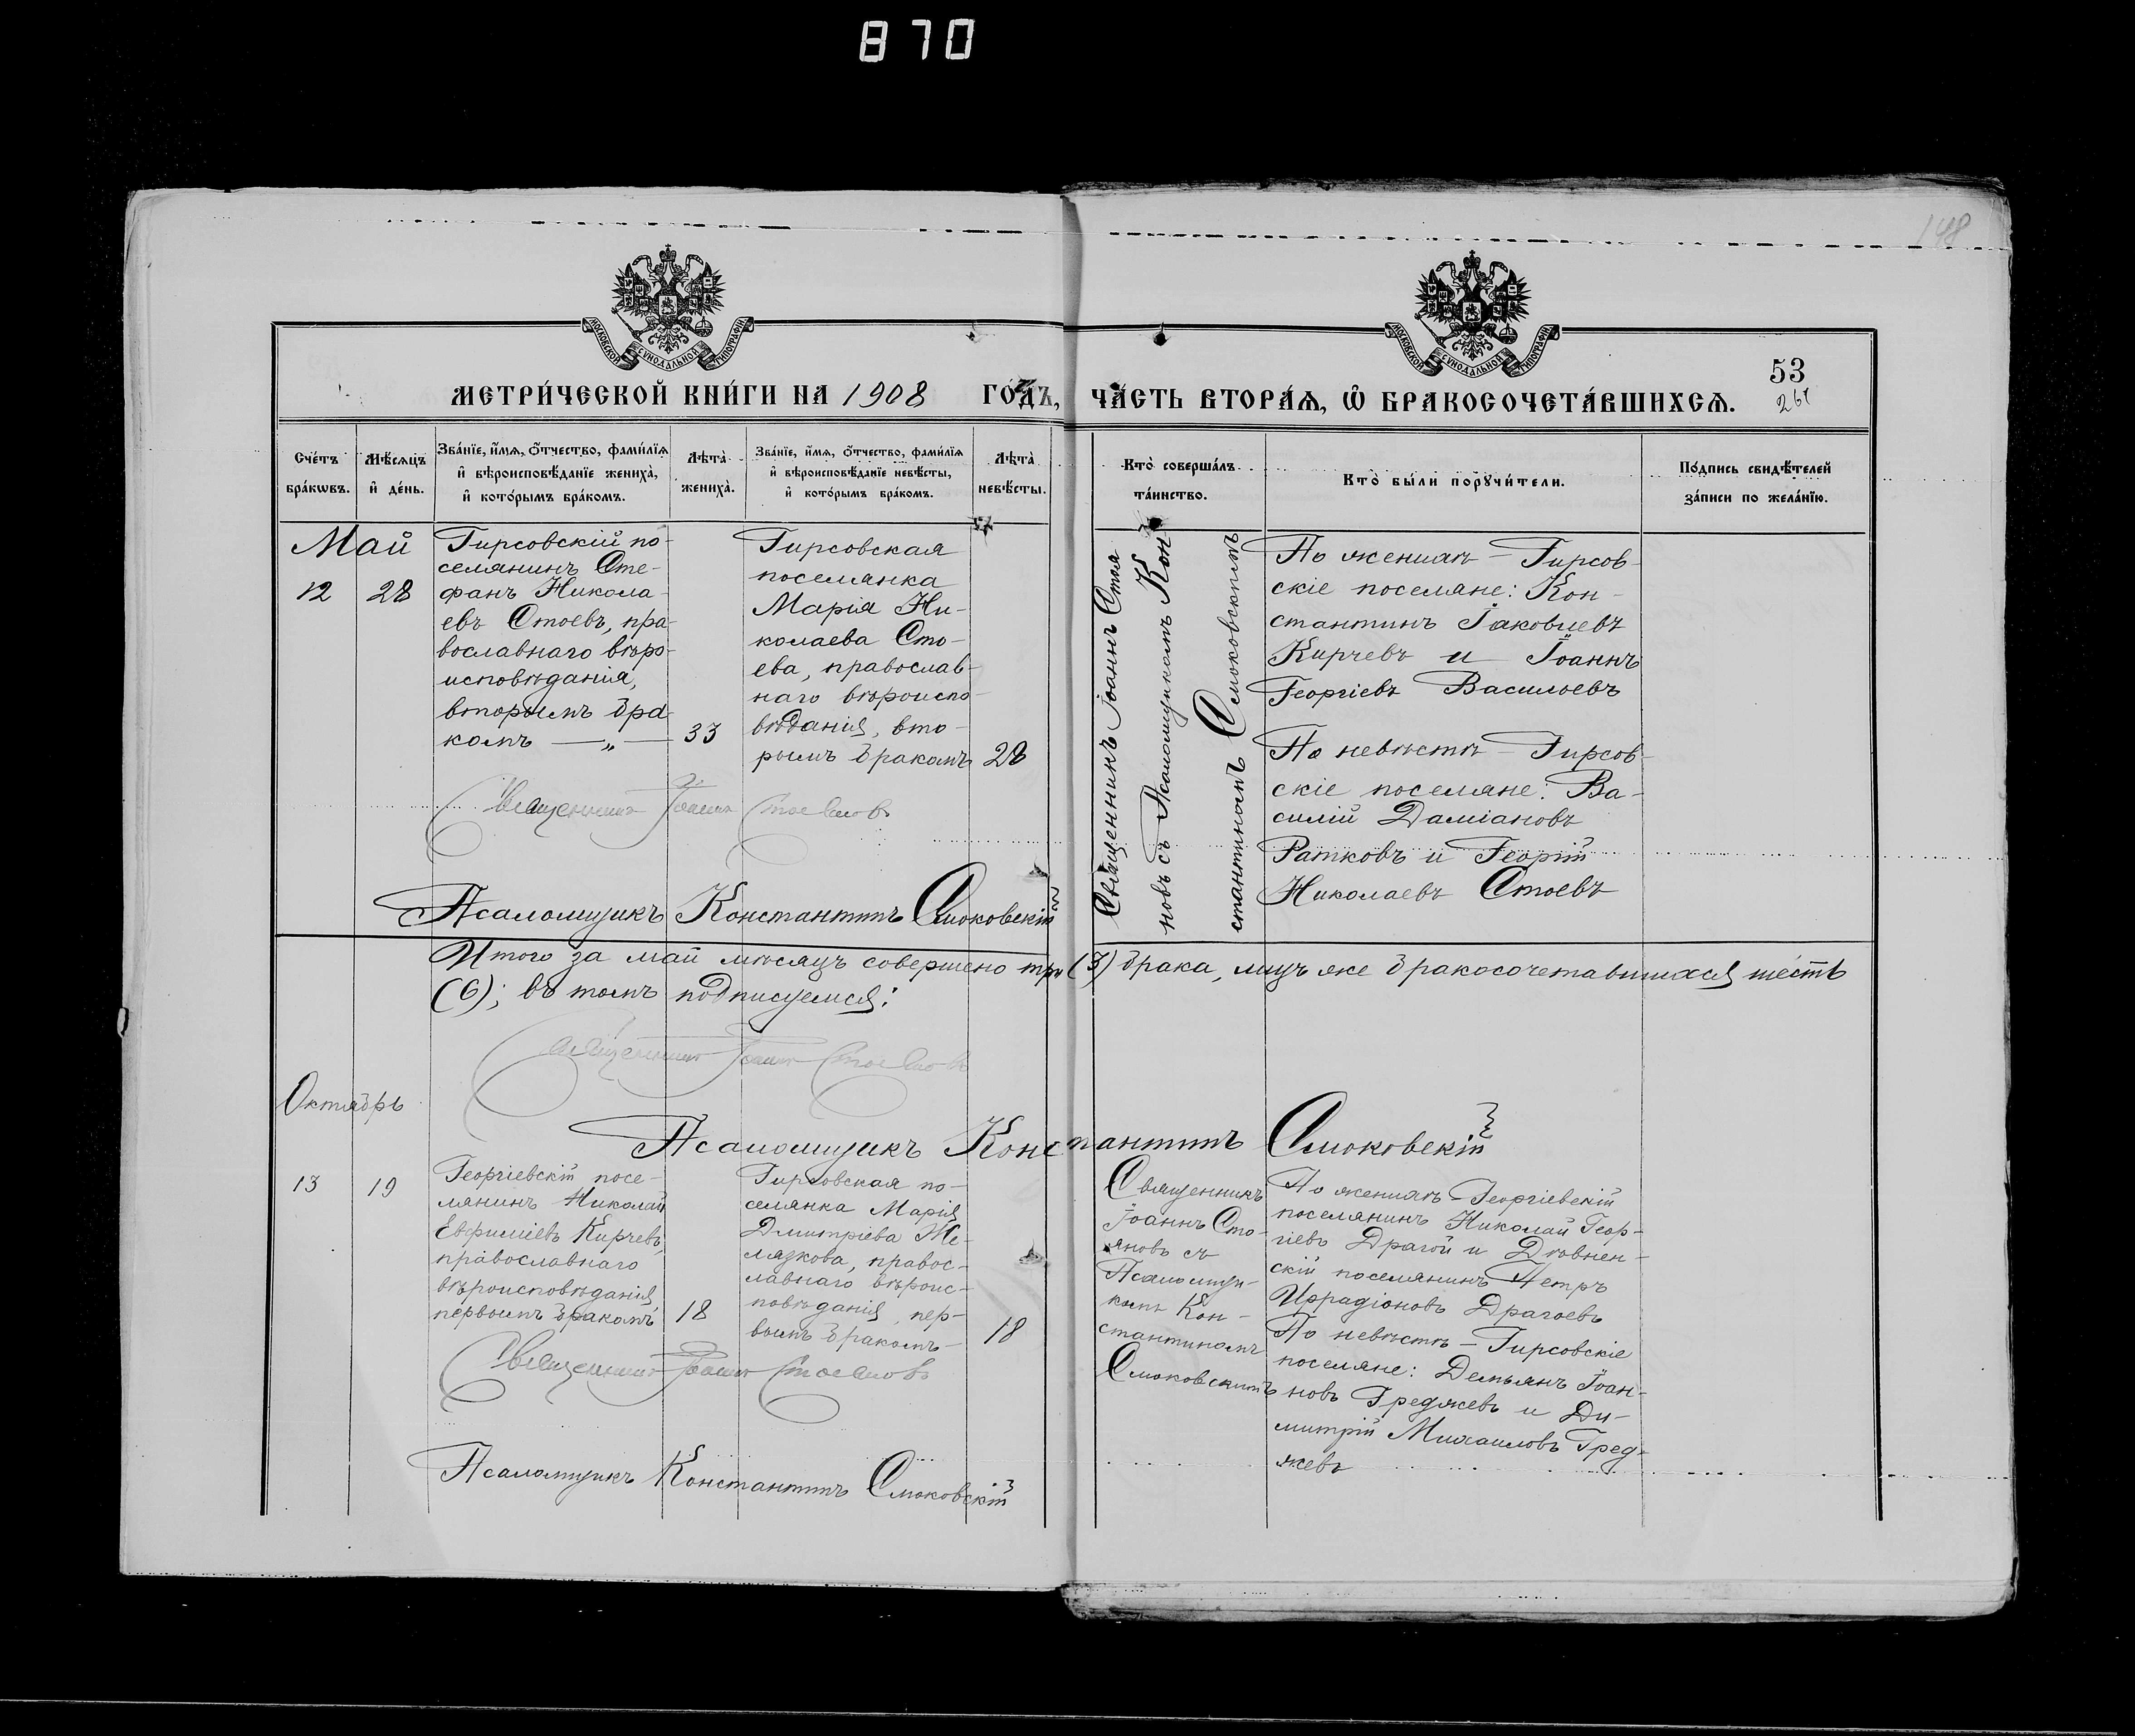 870
148
МОСКОВСКОЙ СѴНОДАЛЬНОЙ ТИПОГРАФІИ
МОСКОВСКОЙ СѴНОДАЛЬНОЙ ТИПОГРАФІИ
53
МЕТРИ́ЧЕСКОЙ КНИ́ГИ НА 1908 ГО́ДЪ, ЧА́СТЬ ВТОРА́Я, Ѡ҆ БРАКОСОЧЕТА́ВШИХСЯ.
Сче́тъ
бра́кѡвъ.
Мѣ́сяцъ
и҆ де́нь.
Зва́нїе, и҆́мя, ѻ҆́тчество, фами́лїя
и҆ вѣроисповѣ́данїе жениха̀,
и҆ кото́рымъ бра́комъ.
Лѣ́та
жениха̀.
Зва́нїе, и҆́мя, ѻ҆́тчество, фами́лїя
и҆ вѣроисповѣ́данїе невѣ́сты,
и҆ кото́рымъ бра́комъ.
Лѣ́та
невѣ́сты.
Кто̀ соверша́лъ
та́инство.
Кто̀ бы́ли порꙋчи́тели.
По́дпись свидѣ́телей
за́писи по жела́нїю.
Май
12
28
Гирсовскій по-
селянинъ Сте-
фанъ Никола-
евъ Стоевъ, пра-
вославнаго вѣро-
исповѣданія,
вторымъ бра-
комъ — „ —
33
Гирсовская
поселянка
Марія Ни-
колаева Сто-
ева, православ-
наго вѣроиспо-
вѣданія, вто-
рымъ бракомъ
28
Священникъ Іоаннъ Стоя
новъ съ Псаломщикомъ Кон
стантиномъ Смоковскимъ
По женихѣ – Гирсов-
скіе поселяне: Кон-
стантинъ Іаковлевъ
Кирчевъ и Іоаннъ
Георгіевъ Васильевъ
По невѣстѣ – Гирсов-
скіе поселяне: Ва-
силій Даміановъ
Ратковъ и Георгій
Николаевъ Стоевъ
Священникъ Іоаннъ Стоянов
Псаломщикъ Константинъ Смоковскій
Итого за май мѣсяцъ совершено три (3) брака, лицъ же бракосочетавшихся шесть
(6); въ томъ подписуемся:
Священникъ Іоаннъ Стоянов
Псаломщикъ Константинъ Смоковскій
Октябрь
13
19
Георгіевскій посе-
лянинъ Николай
Евфиміевъ Кирчевъ,
православнаго
вѣроисповѣданія
первымъ бракомъ
18
Гирсовская по-
селянка Марія
Дмитріева Же-
лязкова, правос-
лавнаго вѣроис-
повѣданія, пер-
вымъ бракомъ –
18
Священникъ
Іоаннъ Сто-
яновъ съ
Псаломщи-
комъ Кон-
стантиномъ
Смоковскимъ
По женихѣ – Георгіевскій
поселянинъ Николай Геор-
гіевъ Драгой и Дювнен-
скій поселянинъ Петръ
Иррадіоновъ Драгоевъ
По невѣстѣ – Гирсовскіе
поселяне: Демьянъ Іоан-
новъ Греджевъ и Ди-
митрій Михаиловъ Гред-
жевъ
Священникъ Іоаннъ Стоянов
Псаломщикъ Константинъ Смоковскій